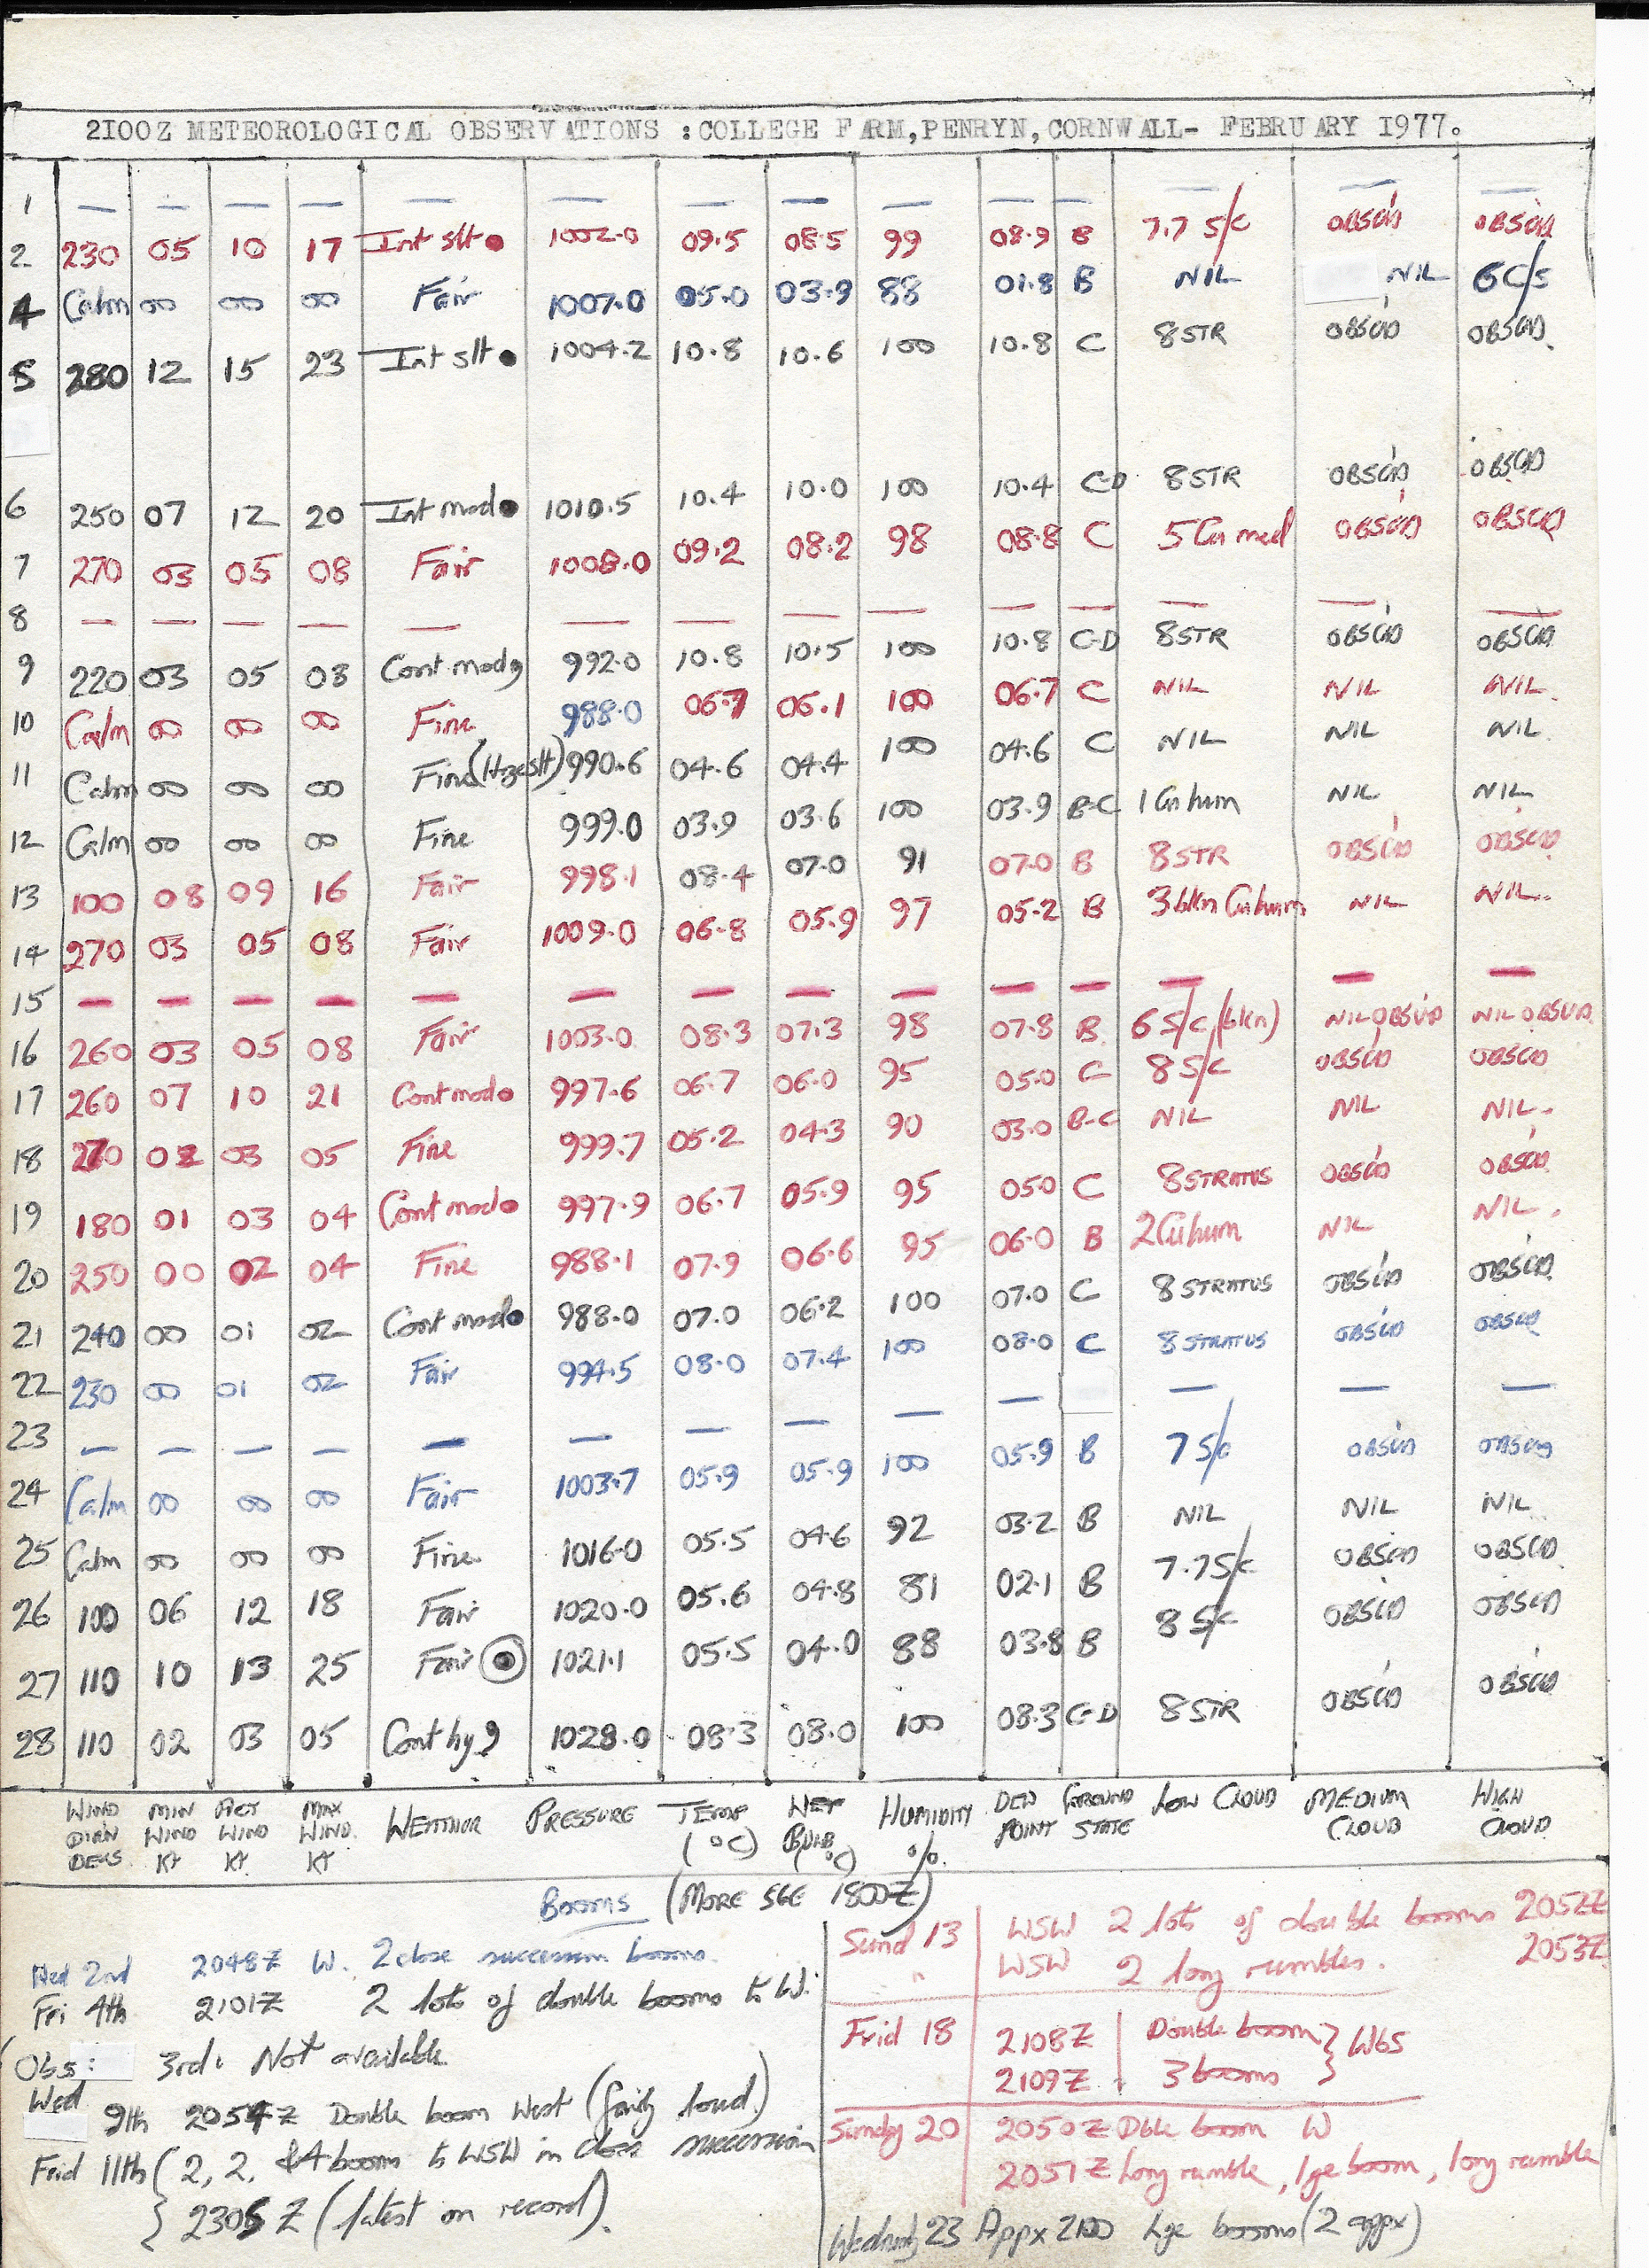 2100Z METEOROLOGICAL OBSERVATIONS :COLLEGE FARM,PENRYN,CORNWALL- FEBRUARY 1977.
1 — — — — — — — — — — — — — —
2 230 05 10 17 Int slt ● 1002.0 09.5 08.5 99 08.9 B 7.7 S/C OBSC'D OBSC'D
4 Calm 00 00 00 Fair 1007.0 05.0 03.9 88 01.8 B NIL NIL 6C/S
5 280 12 15 23 Int slt ● 1004.2 10.8 10.6 100 10.8 C 8 STR OBSC'D OBSC'D
6 250 07 12 20 Int mod ● 1010.5 10.4 10.0 100 10.4 C-D 8 STR OBSC'D OBSC'D
7 270 03 05 08 Fair 1008.0 09.2 08.2 98 08.8 C 5 Cu med OBSC'D OBSC'D
8 — — — — — — — — — — — — — —
9 220 03 05 08 Cont mod 9 992.0 10.8 10.5 100 10.8 C-D 8 STR OBSC'D OBSC'D
10 Calm 00 00 00 Fine 988.0 06.7 06.1 100 06.7 C NIL NIL NIL.
11 Calm 00 00 00 Fine (Hze slt) 990.6 04.6 04.4 100 04.6 C NIL NIL NIL.
12 Calm 00 00 00 Fine 999.0 03.9 03.6 100 03.9 B-C 1 Cu hum NIL NIL
13 100 08 09 16 Fair 998.1 08.4 07.0 91 07.0 B 8 STR OBSC'D OBSC'D
14 270 03 05 08 Fair 1009.0 06.8 05.9 97 05.2 B 3 bkn Cu hum NIL NIL.
15 — — — — — — — — — — — — — —
16 260 03 05 08 Fair 1003.0 08.3 07.3 98 07.8 B 6 S/C (bkn) NIL OBSV'D NIL OBSV'D
17 260 07 10 21 Cont mod ● 997.6 06.7 06.0 95 05.0 C 8 S/C OBSC'D OBSC'D
18 270 02 03 05 Fine 999.7 05.2 04.3 90 03.0 B-C NIL NIL NIL.
19 180 01 03 04 Cont mod ● 997.9 06.7 05.9 95 05.0 C 8 STRATUS OBSC'D OBSC'D
20 250 00 02 04 Fine 988.1 07.9 06.6 95 06.0 B 2 Cu hum NIL NIL.
21 240 00 01 02 Cont mod ● 988.0 07.0 06.2 100 07.0 C 8 STRATUS OBSC'D OBSC'D
22 230 00 01 02 Fair 994.5 08.0 07.4 100 08.0 C 8 STRATUS OBSC'D OBSC'D
23 — — — — — — — — — — — — —
24 Calm 00 00 00 Fair 1003.7 05.9 05.9 100 05.9 B 7 S/C OBSC'D OBSC'D
25 Calm 00 00 00 Fine 1016.0 05.5 04.6 92 03.2 B NIL NIL NIL
26 100 06 12 18 Fair 1020.0 05.6 04.8 81 02.1 B 7.7 S/C OBSC'D OBSC'D
27 110 10 13 25 Fair ● 1021.1 05.5 04.0 88 03.8 B 8 S/C OBSC'D OBSC'D
28 110 02 03 05 Cont hy 9 1028.0 08.3 08.0 100 08.3 C-D 8 STR OBSC'D OBSC'D
WIND DIRN DEGS MIN WIND KT ACT WIND KT MAX WIND. KT WEATHER PRESSURE TEMP (°C) WET BULB (°C) HUMIDITY %. DEW POINT GROUND STATE LOW CLOUD MEDIUM CLOUD HIGH CLOUD
BOOMS (MORE SEE 1800Z)
Wed 2nd 2048Z W. 2 close succession booms.
Fri 4th 2101Z 2 lots of double booms to W.
(Obs: 3rd: Not available
Wed 9th 2054Z Double boom West (fairly loud.)
Frid 11th (2, 2, & 4 booms to WSW in close succession
2305Z (latest on record).
Sund 13 WSW 2 lots of double booms 2052Z
" WSW 2 long rumbles. 2053Z
Frid 18 2108Z Double boom } WbS
2109Z 3 booms
Sunday 20 2050Z Dble boom W
2051Z Long rumble, lge boom, long rumble
Wednesday 23 Appx 2100 Lge booms (2 appx)